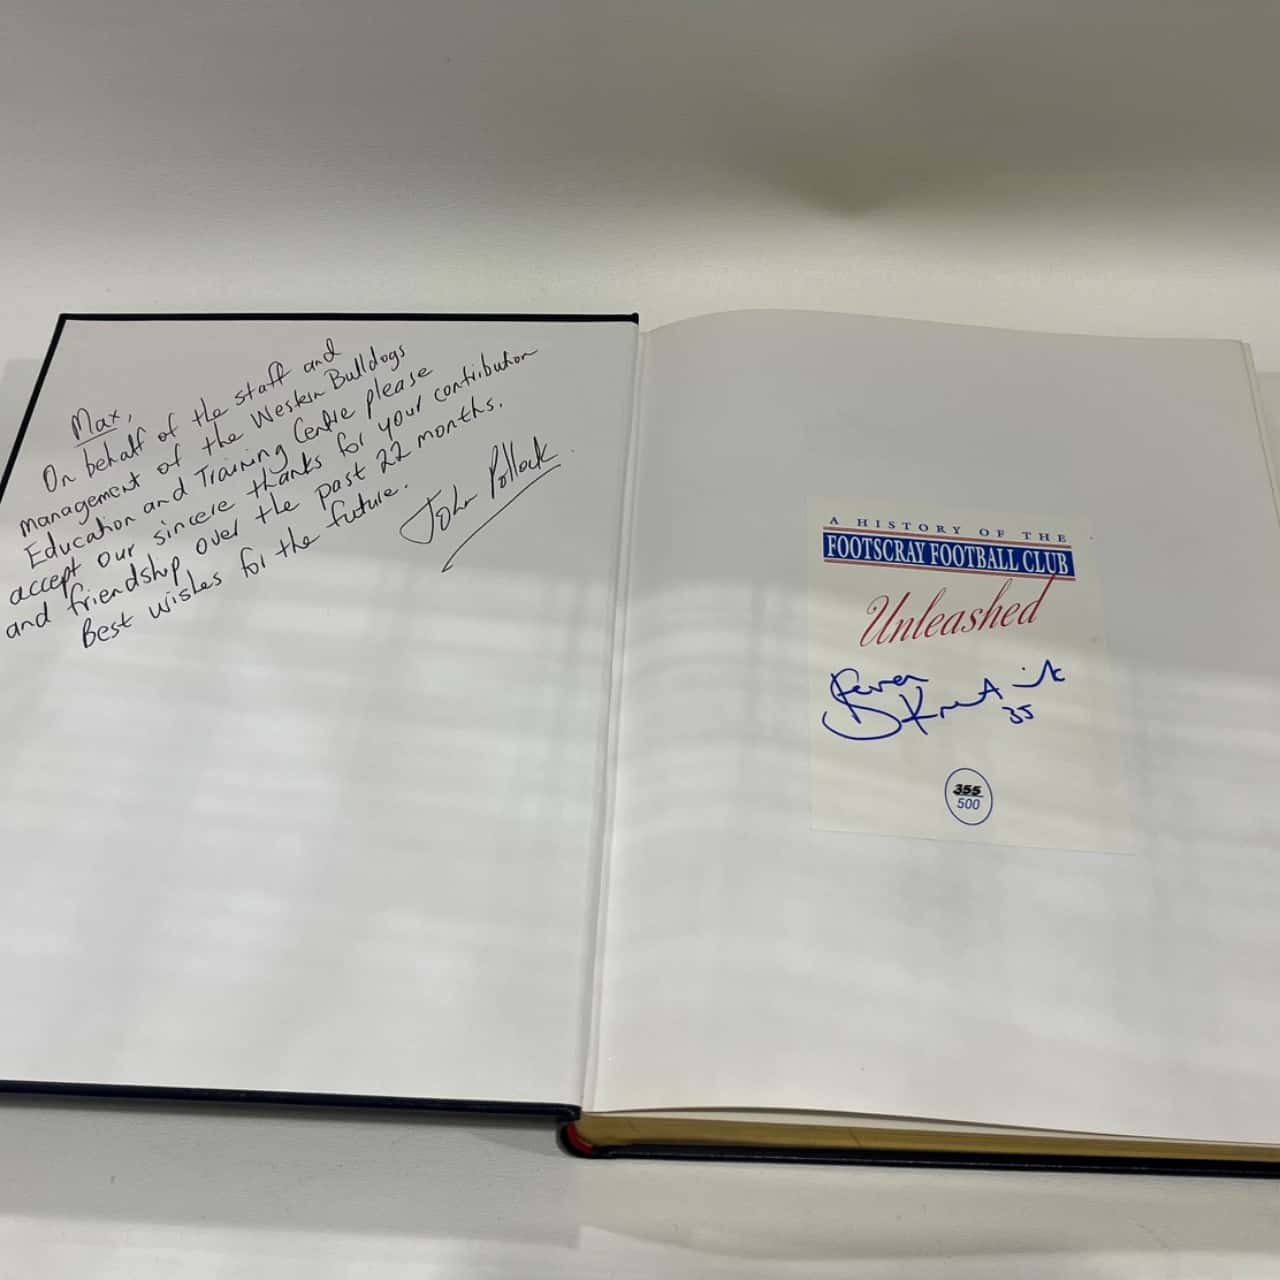 Max,
On behalf of the staff and
management of the Western Bulldogs
Education and Training Centre please
accept our sincere thanks for your contribution
and friendship over the past 22 months.
Best wishes for the future.
John Pollock
A HISTORY OF THE
FOOTSCRAY FOOTBALL CLUB
Unleashed
35
355
500